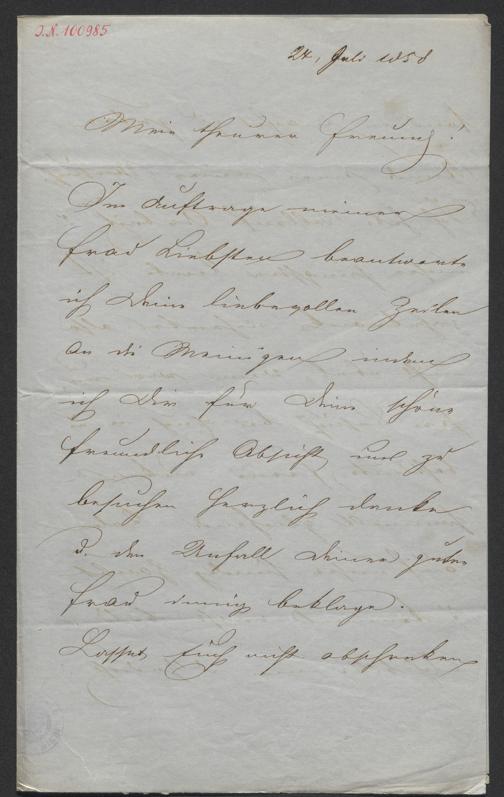 J.N. 100985
24, Juli 1858
Mein theurer Freund!
Im Auftrage meiner
Frau Liebsten beantworte
ich Deine liebevollen Zeilen
an die Meinigen indem
ich Dir für Deine schöne
freundliche Absicht uns zu
besuchen herzlich danke
u. den Unfall Deiner guten
Frau innig beklage.
Lasset Euch nicht abschrecken